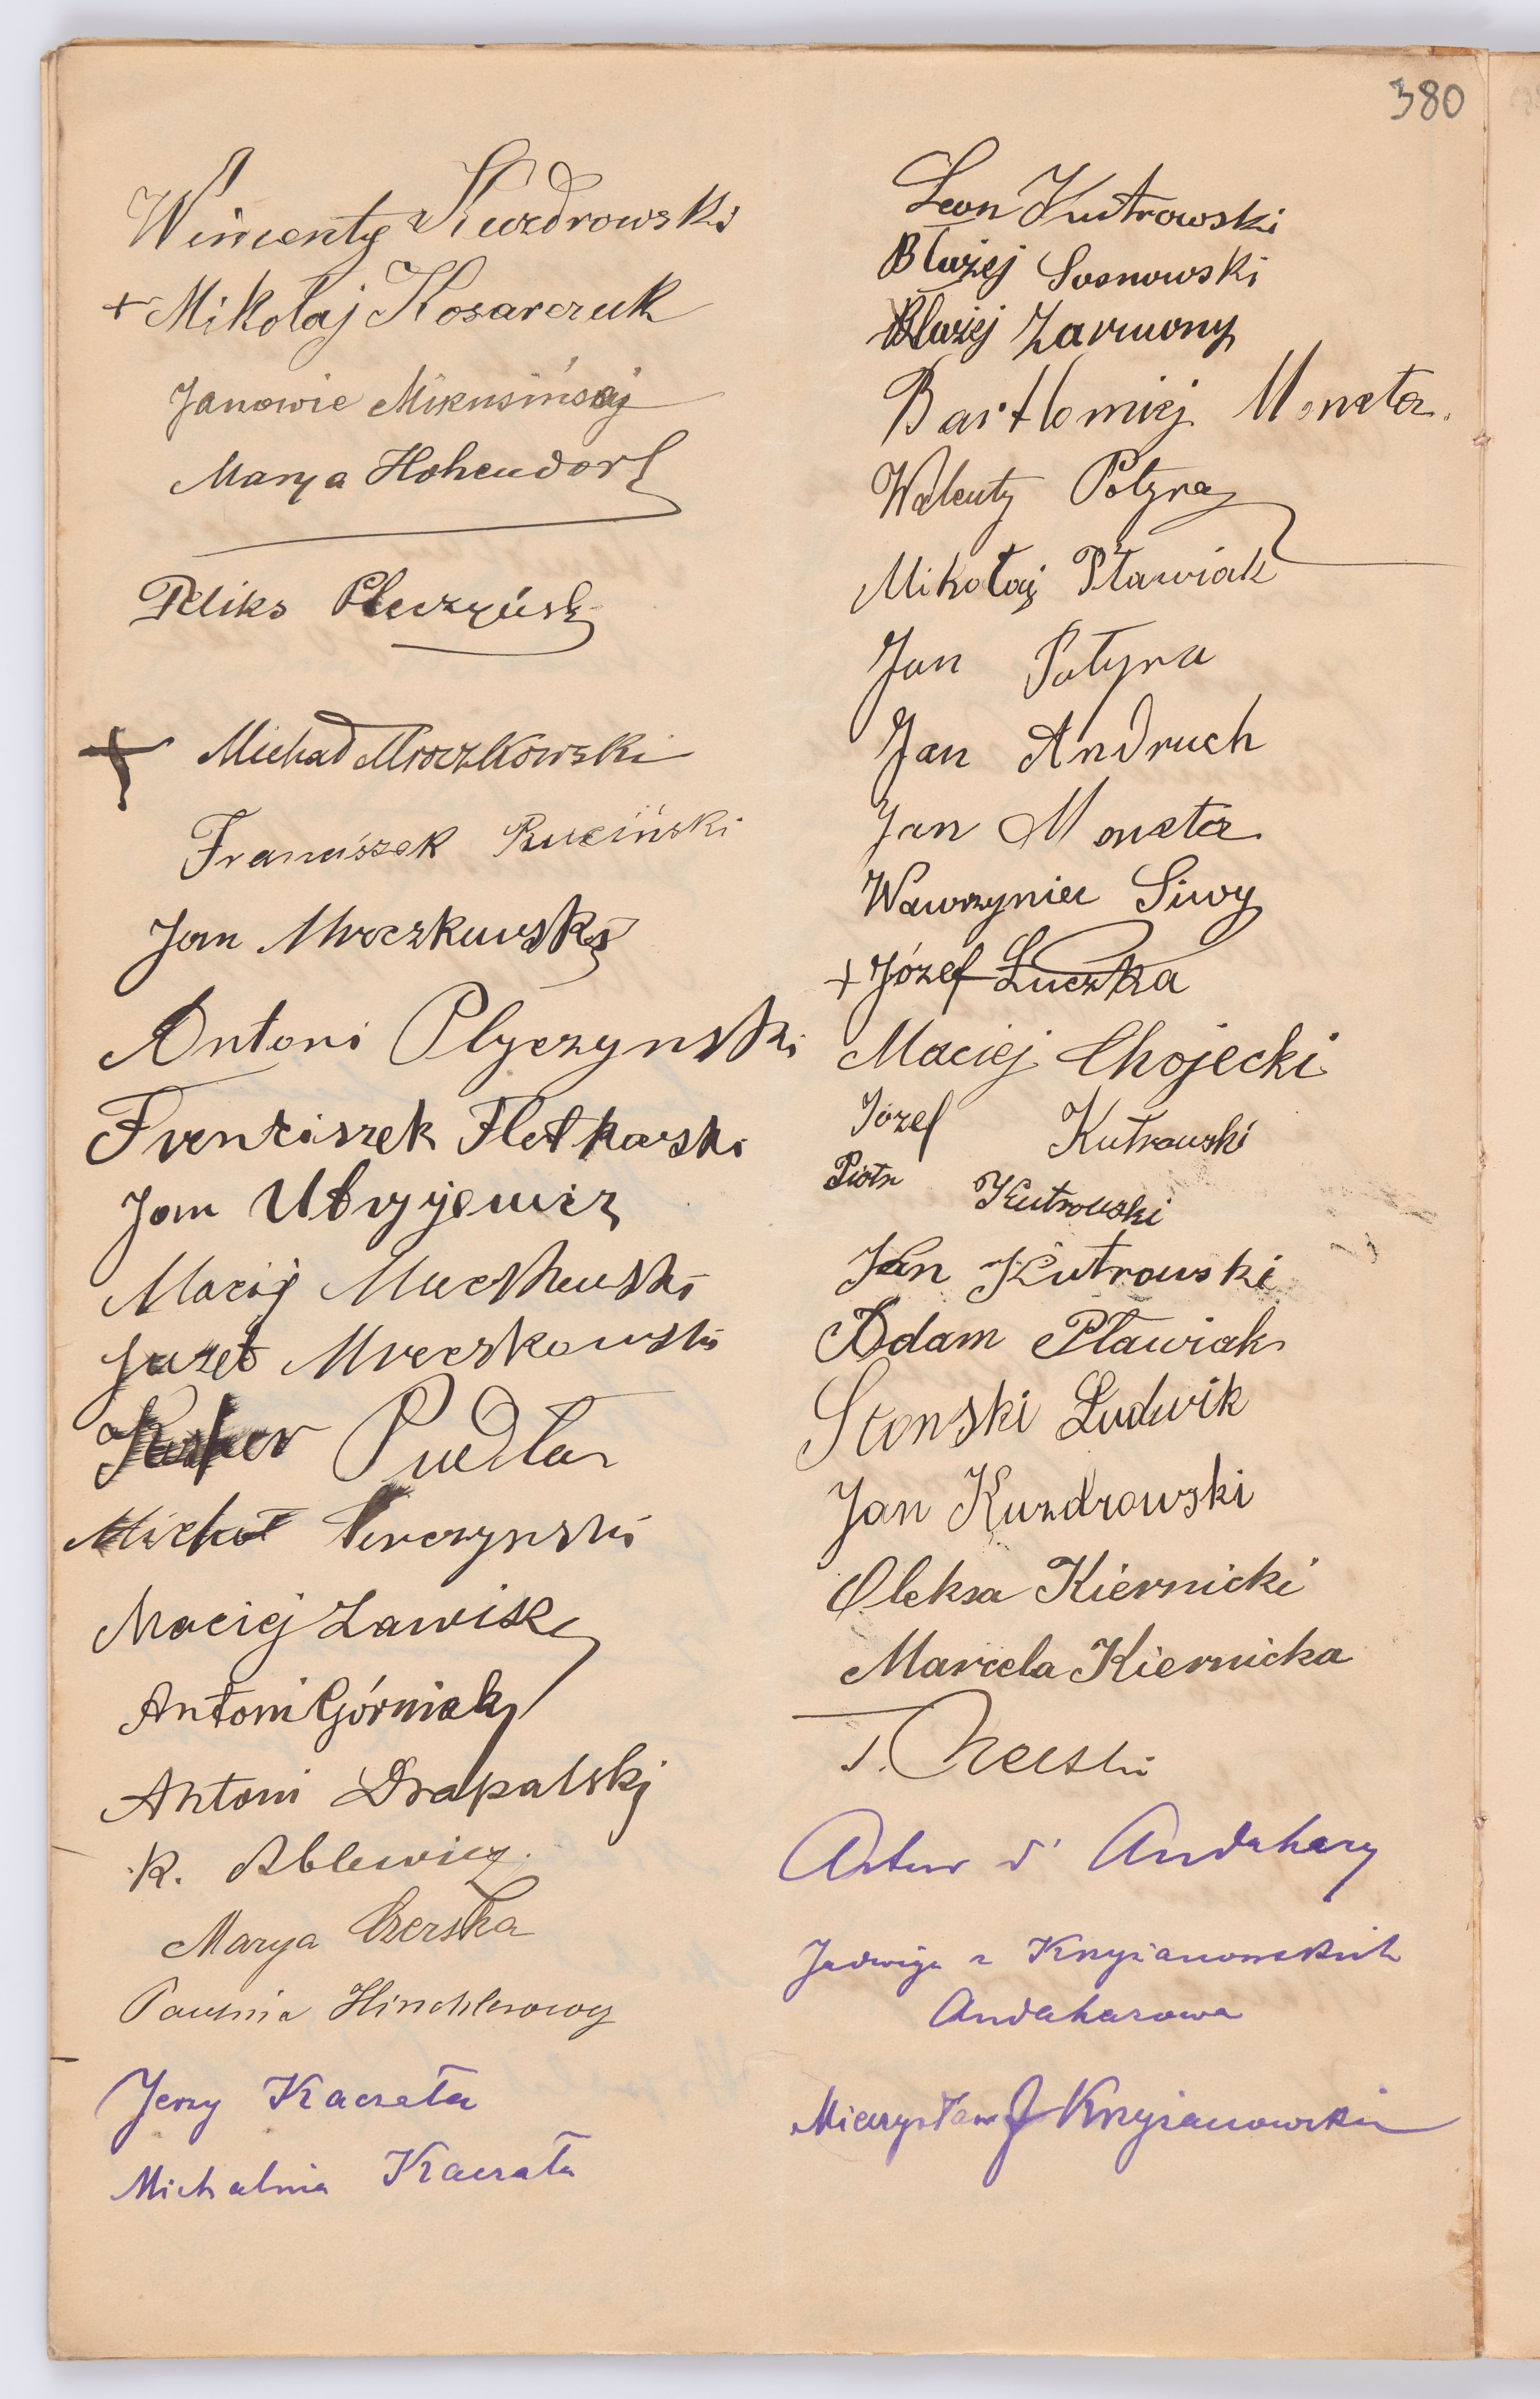 380
Wincenty Kuzdrowski
+ Mikołaj Kosarczuk
Janowie Mikusińscy
Marya Hohendorf
Feliks Pleczyński
+ Michał Mroczkowski
Franciszek Ruciński
Jan Mroczkowski
Antoni Plyczynski
Frenciszek Fletkarski
Jan Ubryjewicz
Maciej
Józef Mroczkowski
Pudła
Michał
Maciej Zawiski
Antoni Górniak
Antoni Drapalski
K. Ablewicz.
Marya Czerska
Paulina Hirschlerowa
Jerzy Kaczała
Michalina Kaczała
Leon Kutrowski
Błażej Sosnowski
Błażej Zarwony
Bartłomiej Moneta.
Walenty Potyra
Mikołaj Pławiak
Jan Potyra
Jan Andruch
Jan Moneta
Wawrzyniec Siwy
+ Józef Łuczka
Maciej Chojecki
Józef Kutrowski
Piotr Kutrowski
Jan Kutrowski
Adam Pławiak
Słonski Ludwik
Jan Kuzdrowski
Oleksa Kiernicki
Marcela Kiernicka
Artur d' Andahazy
Jadwiga z Krzyżanowskich
Andahazowa
Mieczysław J Krzyżanowski